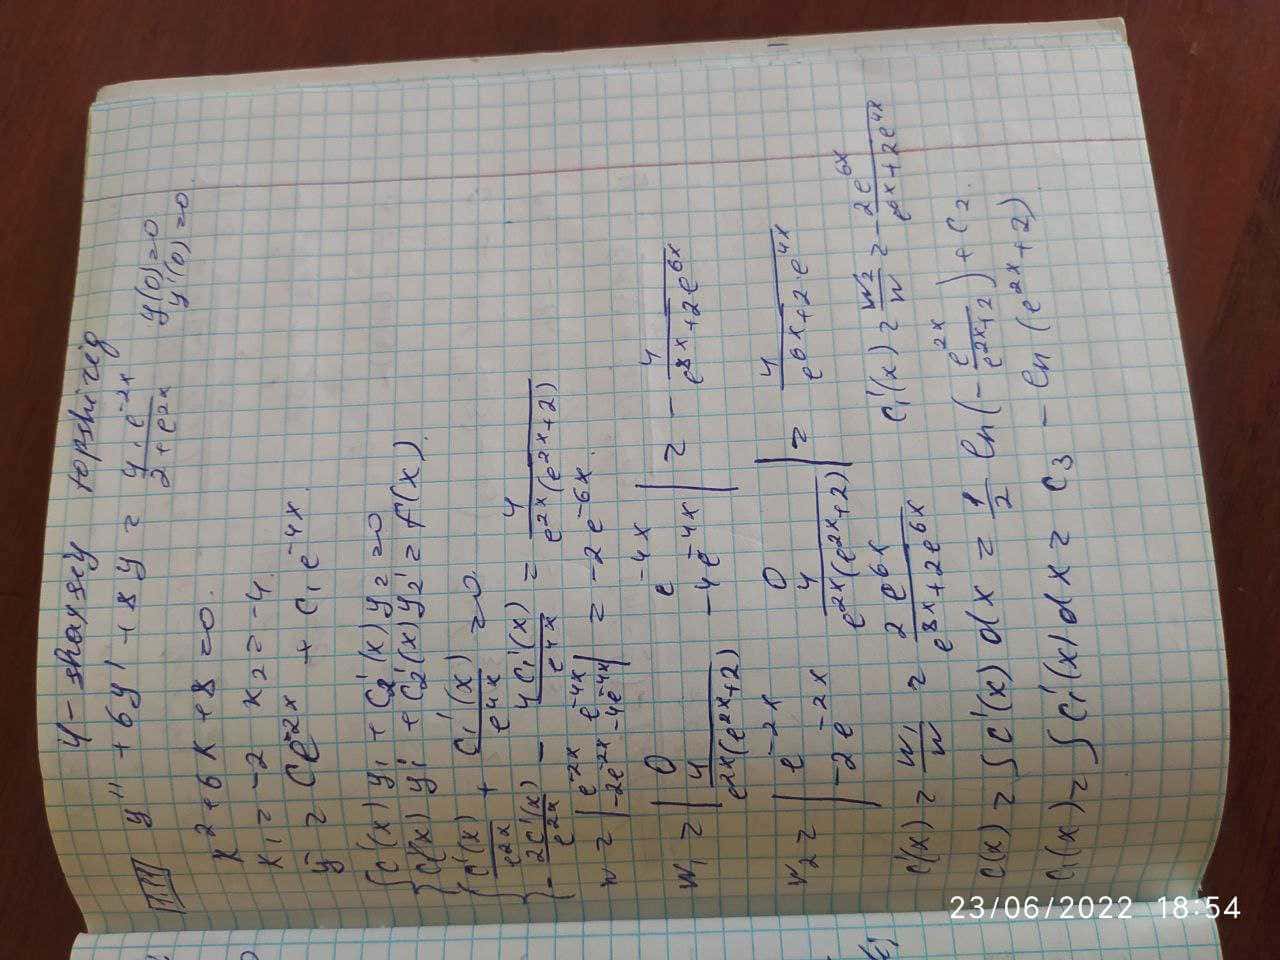 4-shaxsiy topshiriq
1.11 y'' + 6y' + 8y = 4·e^-2x / 2+e^2x y(0)=0 y'(0)=0
k² + 6k + 8 = 0.
k₁ = -2 k₂ = -4.
y = Ce^-2x + C₁e^-4x.
{ C'(x) y₁ + C₂'(x) y₂ = 0
{ C'(x) y₁' + C₂'(x) y₂' = f(x).
{ C'(x) / e^2x + C₁'(x) / e^4x = 0.
{ - 2C'(x) / e^2x - 4C₁'(x) / e^4x = 4 / e^2x(e^2x+2)
w = | e^-2x e^-4x |
| -2e^-2x -4e^-4x | = -2e^-6x.
w₁ = | 0 e^-4x |
| 4 / e^2x(e^2x+2) -4e^-4x | = - 4 / e^8x+2e^6x
w₂ = | e^-2x 0 |
| -2e^-2x 4 / e^2x(e^2x+2) | = 4 / e^6x+2·e^4x
C'(x) = w₁/w = 2e^6x / e^8x+2e^6x C₁'(x) = w₂/w = - 2e^6x / e^6x+2e^4x
C(x) = ∫ C'(x) dx = 1/2 ln(- e^2x / e^2x+2) + C₂.
C₁(x) = ∫ C₁'(x) dx = C₃ - ln(e^2x+2)
23/06/2022 18:54